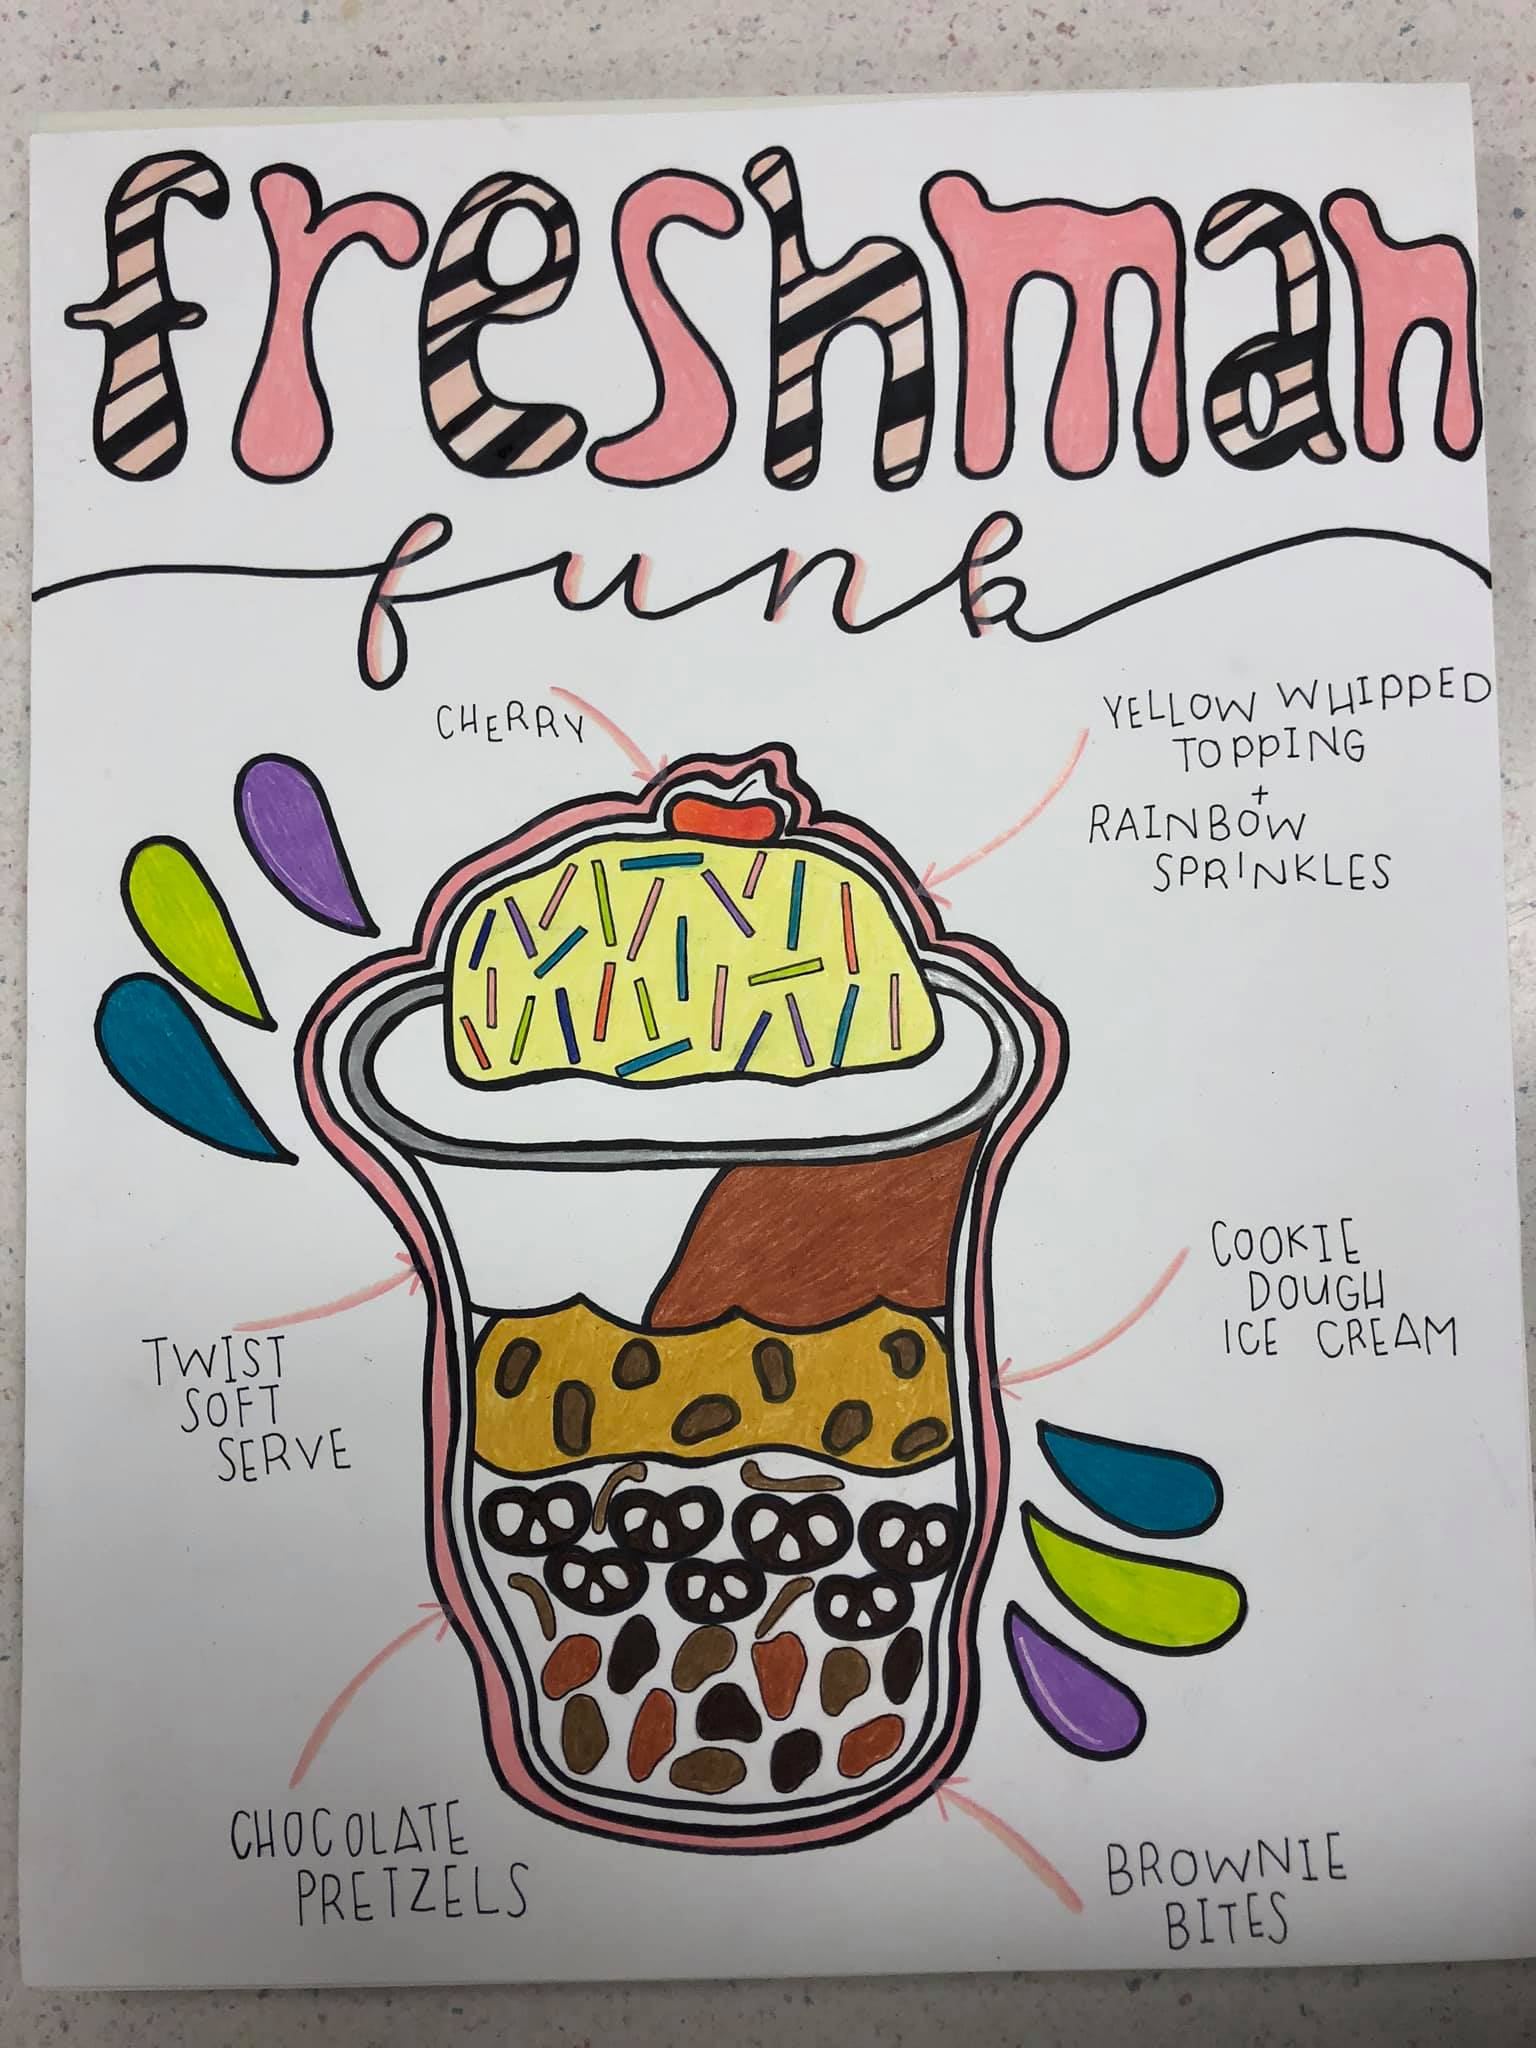 freshman
funk
CHERRY
YELLOW WHIPPED
TOPPING
+
RAINBOW
SPRINKLES
TWIST
SOFT
SERVE
COOKIE
DOUGH
ICE CREAM
CHOCOLATE
PRETZELS
BROWNIE
BITES